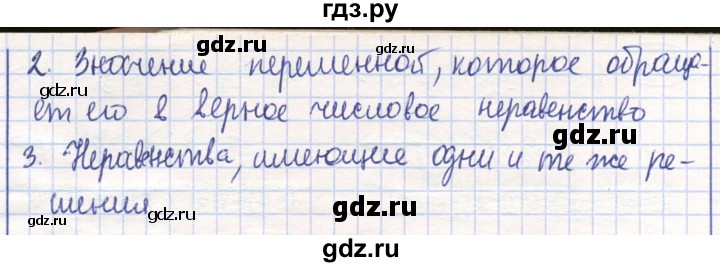 гдз.ру
2. Значение переменной, которое обраща-
ет его в верное числовое неравенство
3. Неравенства, имеющие одни и те же ре-
шения
gdz.ru
gdz.ru
gdz.ru
gdz.ru
gdz.ru
gdz.ru
gdz.ru
gdz.ru
gdz.ru